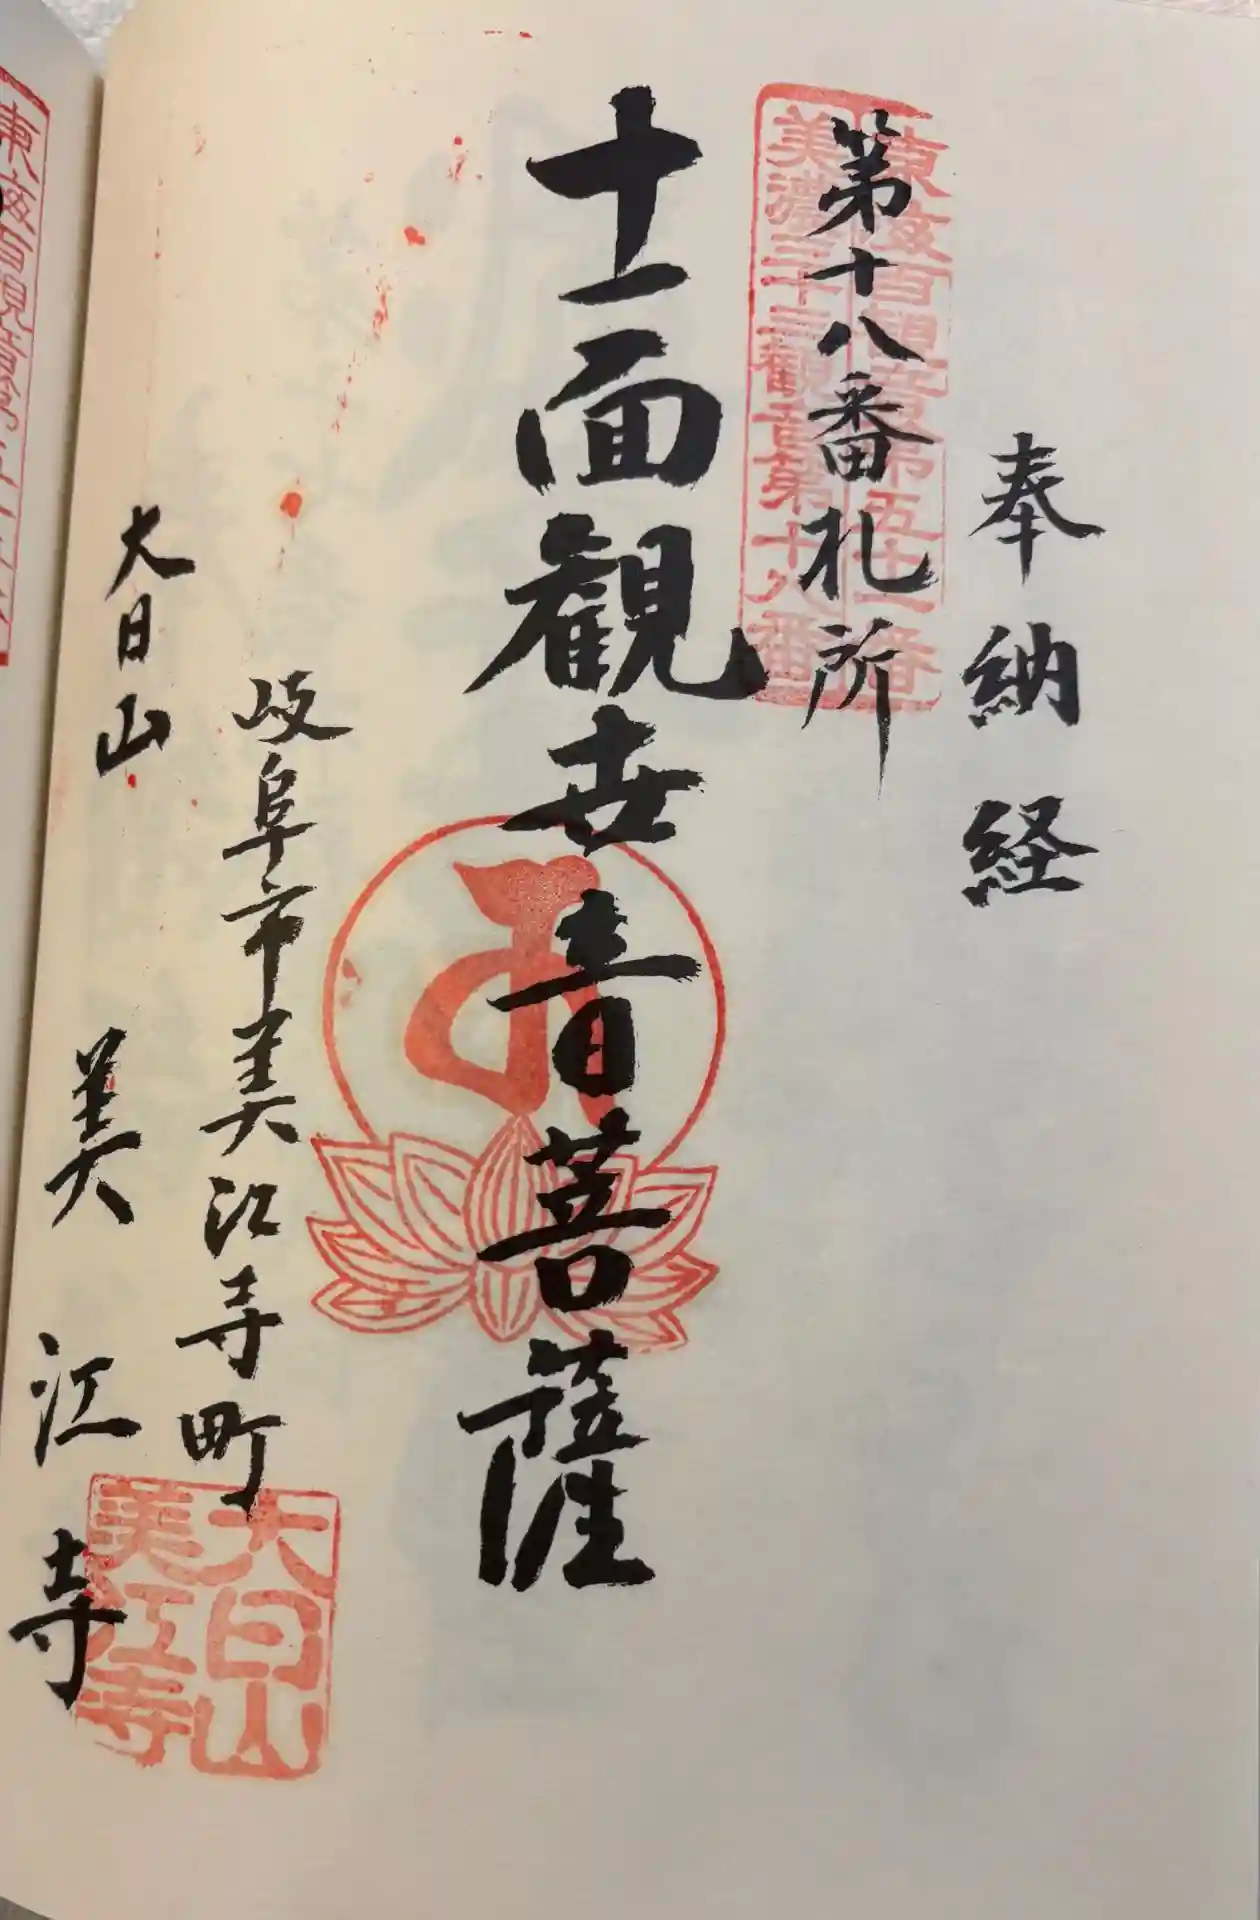 奉納経
第十八番札所
東海百観音第五十一番
美濃三十三観音第十八番
十一面観世音菩薩
岐阜市美江寺町
大日山 美江寺
大日山
美江寺
東海百観音第